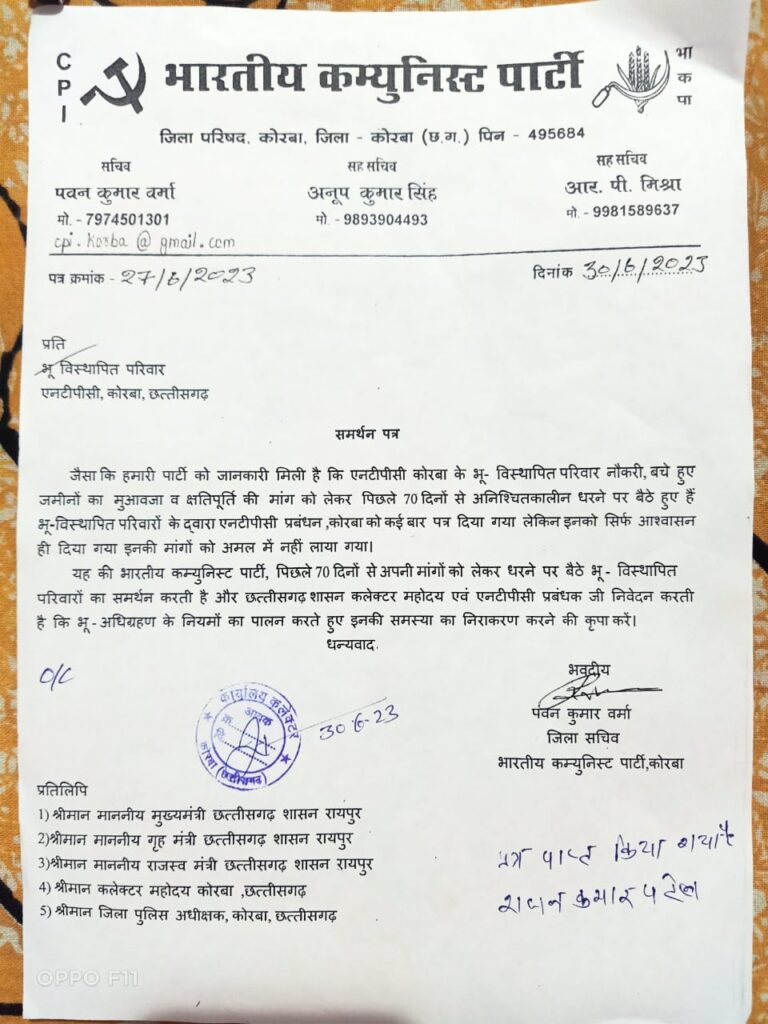 CPI
भारतीय कम्युनिस्ट पार्टी
भाकपा
जिला परिषद, कोरबा, जिला - कोरबा (छ.ग.) पिन - 495684
सचिव
पवन कुमार वर्मा
मो. - 7974501301
cpi.korba@gmail.com
सह सचिव
अनूप कुमार सिंह
मो. - 9893904493
सह सचिव
आर. पी. मिश्रा
मो. - 9981589637
पत्र क्रमांक - 27/6/2023
दिनांक 30/6/2023
प्रति
भू विस्थापित परिवार
एनटीपीसी, कोरबा, छत्तीसगढ़
समर्थन पत्र
जैसा कि हमारी पार्टी को जानकारी मिली है कि एनटीपीसी कोरबा के भू- विस्थापित परिवार नौकरी, बचे हुए
जमीनों का मुआवजा व क्षतिपूर्ति की मांग को लेकर पिछले 70 दिनों से अनिश्चितकालीन धरने पर बैठे हुए हैं
भू-विस्थापित परिवारों के द्वारा एनटीपीसी प्रबंधन ,कोरबा को कई बार पत्र दिया गया लेकिन इनको सिर्फ आश्वासन
ही दिया गया इनकी मांगों को अमल में नहीं लाया गया।
यह की भारतीय कम्युनिस्ट पार्टी, पिछले 70 दिनों से अपनी मांगों को लेकर धरने पर बैठे भू - विस्थापित
परिवारों का समर्थन करती है और छत्तीसगढ़ शासन कलेक्टर महोदय एवं एनटीपीसी प्रबंधक जी निवेदन करती
है कि भू - अधिग्रहण के नियमों का पालन करते हुए इनकी समस्या का निराकरण करने की कृपा करें।
धन्यवाद
O/C
कार्यालय कलेक्टर
आवक
क्र.
दि.
कोरबा (छत्तीसगढ़)
30-6-23
भवदीय
पवन कुमार वर्मा
जिला सचिव
भारतीय कम्युनिस्ट पार्टी,कोरबा
प्रतिलिपि
1) श्रीमान माननीय मुख्यमंत्री छत्तीसगढ़ शासन रायपुर
2)श्रीमान माननीय गृह मंत्री छत्तीसगढ़ शासन रायपुर
3)श्रीमान माननीय राजस्व मंत्री छत्तीसगढ़ शासन रायपुर
4) श्रीमान कलेक्टर महोदय कोरबा ,छत्तीसगढ़
5) श्रीमान जिला पुलिस अधीक्षक, कोरबा, छत्तीसगढ़
पत्र प्राप्त किया गया है
कुमार पटेल
OPPO F11